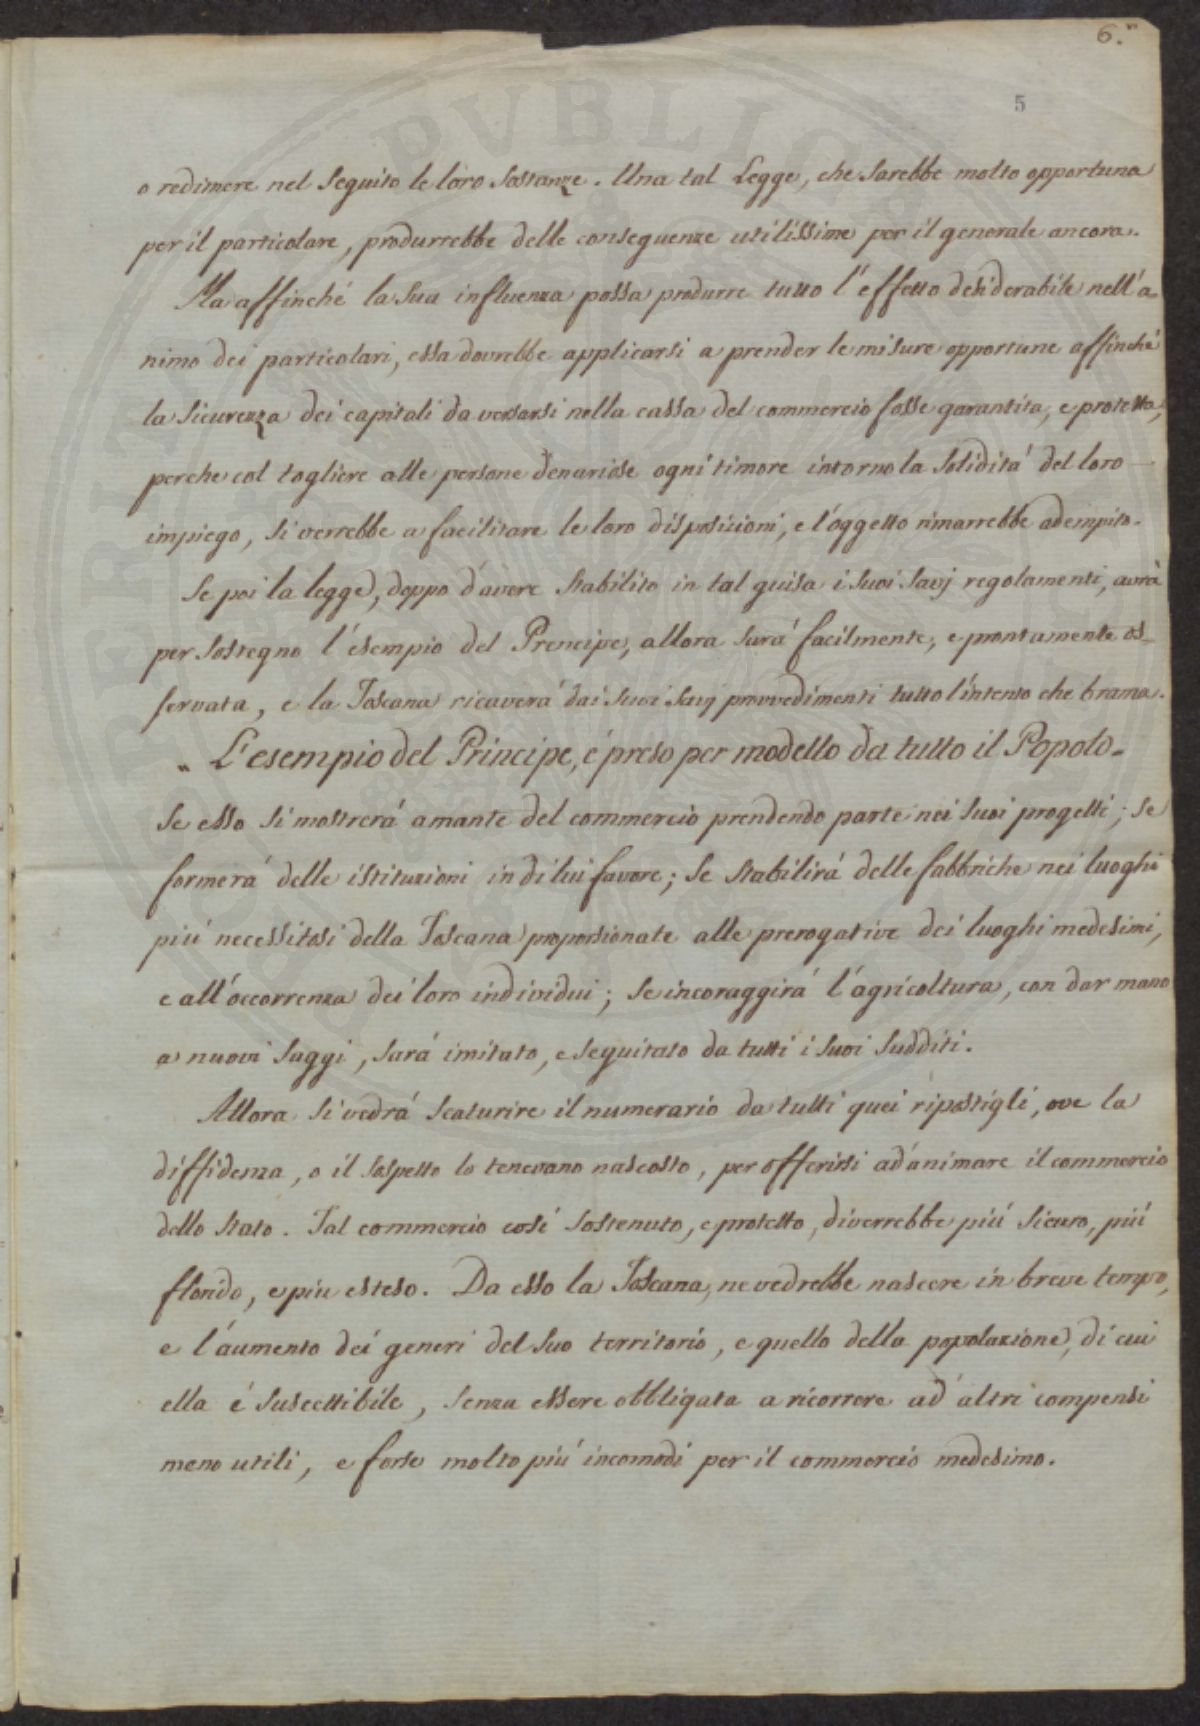 6.
5
o redimere nel seguito le loro sostanze. Una tal Legge, che sarebbe molto opportuna
per il particolare, produrrebbe delle conseguenze utilissime per il generale ancora.
Ma affinché la sua influenza possa produrre tutto l'effetto desiderabile nell'a
nimo dei particolari, essa dovrebbe applicarsi a prender le misure opportune affinché
la sicurezza dei capitali da versarsi nella cassa del commercio fosse garantita, e protetta,
perche col togliere alle persone denariose ogni timore intorno la solidità del loro
impiego, si verrebbe a facilitare le loro disposizioni, e l'oggetto rimarrebbe adempito.
Se poi la legge, doppo d'avere stabilito in tal guisa i suoi savj regolamenti, avrà
per sostegno l'esempio del Prencipe, allora sarà facilmente, e prontamente os_
servata, e la Toscana ricaverà dai suoi savj provvedimenti tutto l'intento che brama.
„ L'esempio del Principe, é preso per modello da tutto il Popolo.
Se esso si mostrerá amante del commercio prendendo parte nei suoi progetti; se
formerá delle istituzioni in di lui favore; se stabilirá delle fabbriche nei luoghi
piú necessitosi della Toscana proporsionate alle prerogative dei luoghi medesimi,
e all'occorrenza dei loro individui; se incoraggirá l'agricoltura, con dar mano
a nuovi saggi, sará imitato, e seguitato da tutti i suoi sudditi.
Allora si vedrá scaturire il numerario da tutti quei ripostigli, ove la
diffidenza, o il sospetto lo tenevano nascosto, per offerirsi ad'animare il commercio
dello stato. Tal commercio cosí sostenuto, e protetto, diverrebbe piú sicuro, piú
florido, e piu esteso. Da esso la Toscana, ne vedrebbe nascere in breve tempo,
e l'aumento dei generi del suo territorio, e quello della popolazione, di cui
ella é suscettibile, senza essere obbligata a ricorrere ad'altri compensi
meno utili, e forse molto piú incomodi per il commercio medesimo.
PVBLIC